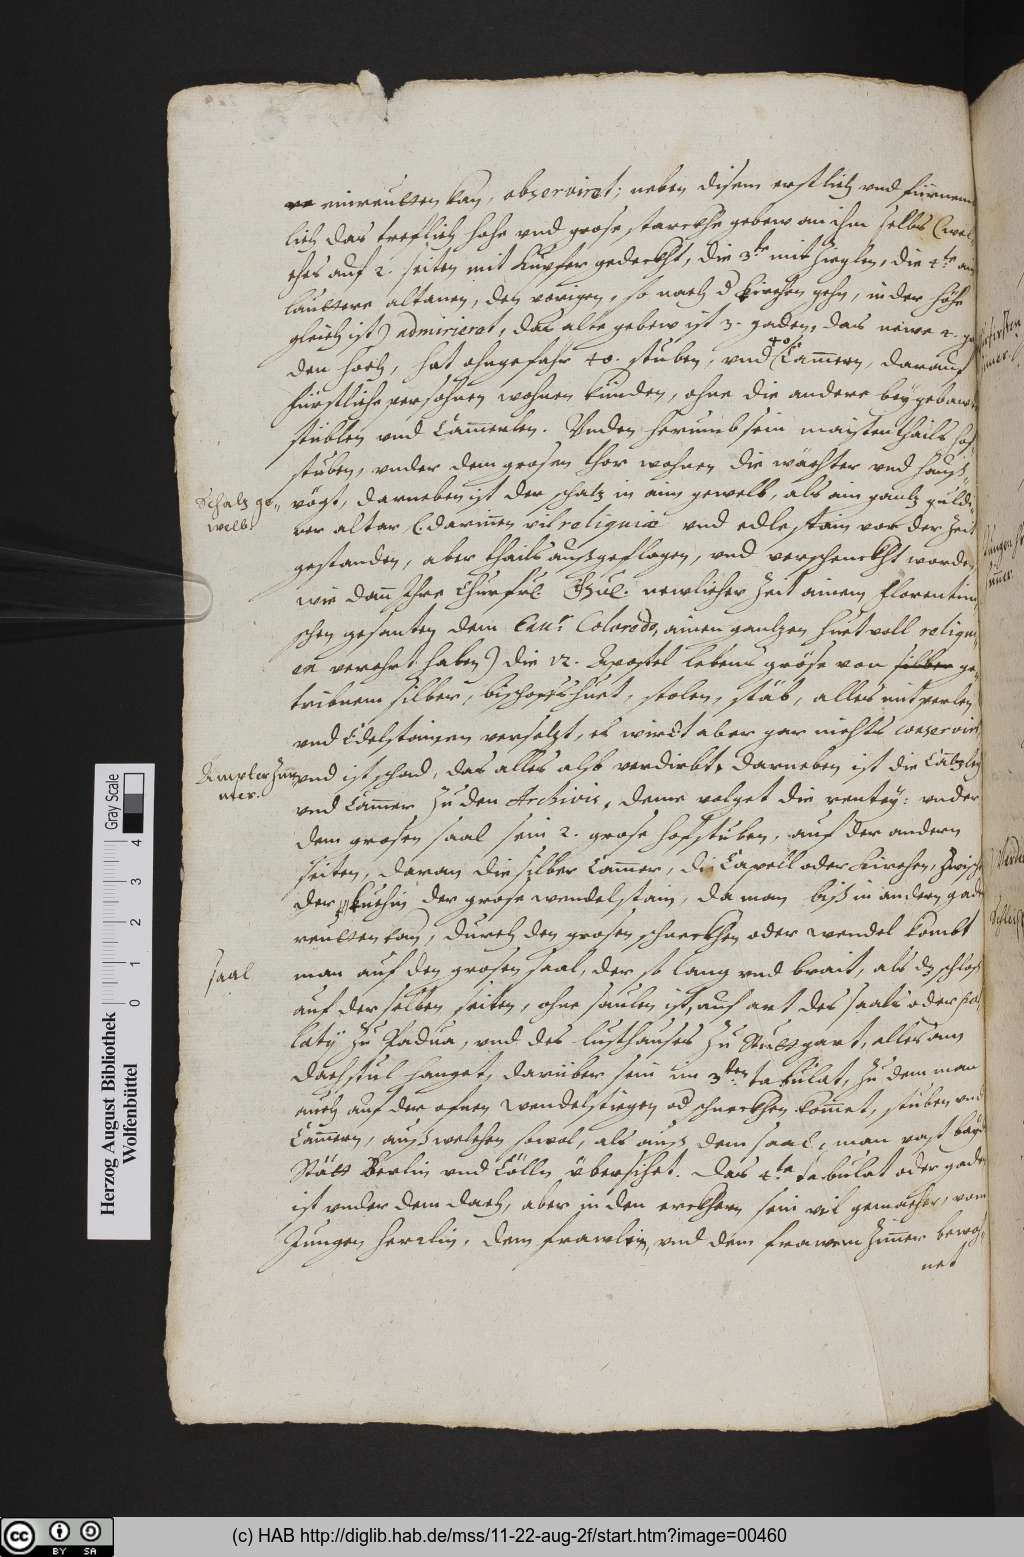 re einreutten kan, observiret; neben disem erstlich vnd fürnem
lich das trefflich hohe vnd grose, starckhe gebew an ihm selbs (wel-
ches auf 2. seiten mit Kupfer gedeckht, die 3te mit Zieglen, die 4te an
lauttere altanen, den vorigen, so nach d Kirchen gehn, in der höhe
gleich ist) admirieret, das alte gebew ist 3. gaden, das newe 4. ga
den hoch, hat ohngefahr 40. stuben, vnd 40 Camern, darauf
fürstliche persohnen wohnen künden, ohne die andere beygebawte
stüblen vnd Camerlen. Vnden herumb sein maistentheils hof
stuben, vnder dem grosen thor wohnen die wächter vnd hauß
Schatz ge-
welb.
vögt, darneben ist der schatz in aim gewelb, als ain gantz gulde-
ner altar (darinnen vil reliquiæ vnd edlestain vor der Zeit
gestanden, aber theils außgeflogen, vnd verschenckht worden
wie dann Ihre Churfrl. newlicher Zeit ainem Florentini
schen gesanten dem Cau.r Coloredo, ainen gantzen huet voll reliqui-
en verehrt haben) die 12. Apostel lebens gröse von silber ge-
tribnem silber, bischoffshuet, stolen, stäb, alles mit perlen
vnd Edelstainen versetzt, es wirdt aber gar nichts conservirt
vnd ist schad, das alles also verdirbt, darneben ist die Cantzley
vnd Camer zu den Archivis, deme volget die rentey: vnder
dem grosen saal sein 2. grose hofstuben, auf der andern
seiten, daran die silber Camer, di Capell oder Kirchen, zwische
der Kuchin der grose wendelstain, da man biß in andern gade
reutten kan, durch den grosen schneckhen oder wendel kombt
saal
man auf den grosen saal, der so lang vnd brait, als dz schloß
auf der selben seiten, ohne saulen ist, auf art des saals oder pa-
latij zu Padua, vnd des lusthauses zu Stuttgart, alles am
dachstul hanget, darüber sein im 3ten tabulat, zu dem man
auch auf der ofnen wendelstiegen od schneckhen kommet, stuben vnd
Camern, auß welchen sowol, als auß dem saal, man vast bayde
Stätt Berlin vnd Cölln übersihet. Das 4te tabulat oder gaden
ist vnder dem dach, aber in den erckhern sein vil gemacher, vom
Jungen herrlin, dem frawlin, vnd dem frawen Zimer bewoh-
net
Herzog August Bibliothek
Wolfenbüttel
0 1 2 3 4
Gray Scale
cc BY SA
(c) HAB http://diglib.hab.de/mss/11-22-aug-2f/start.htm?image=00460